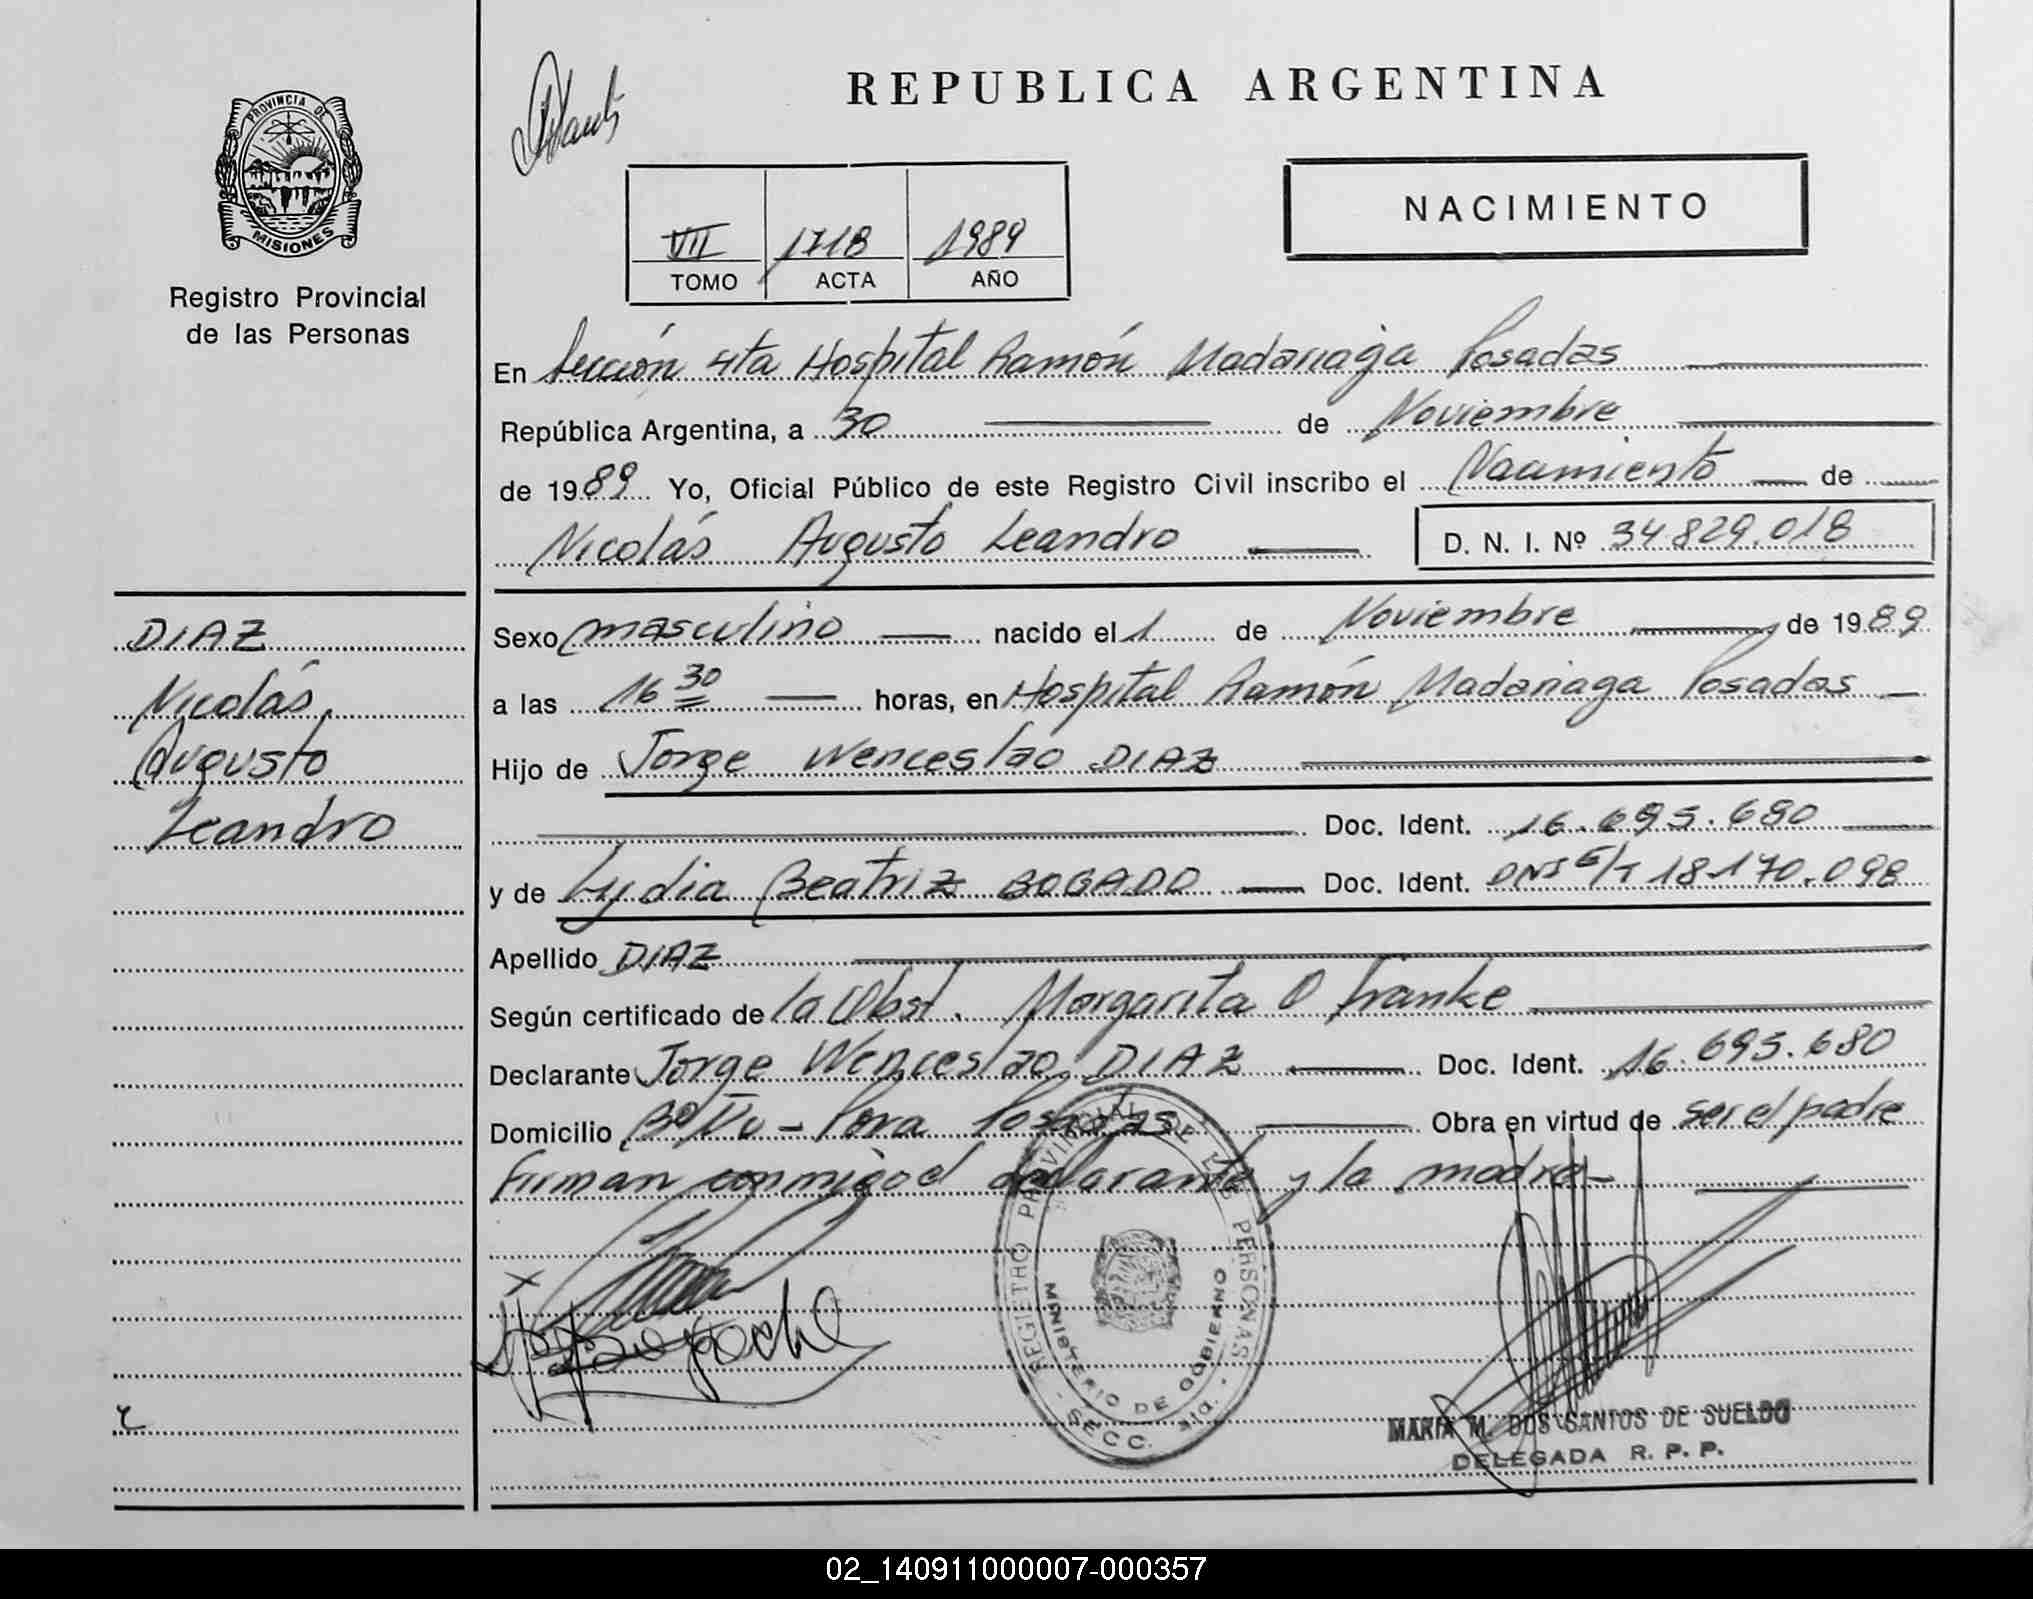 PROVINCIA DE
MISIONES
Registro Provincial
de las Personas
DIAZ
Nicolás
Augusto
Leandro
REPUBLICA ARGENTINA
NACIMIENTO
VII 1718 1989
TOMO ACTA AÑO
En Sección 4ta Hospital Ramón Madariaga Posadas
República Argentina, a 30 de Noviembre
de 1989 Yo, Oficial Público de este Registro Civil inscribo el Nacimiento de
Nicolás Augusto Leandro D. N. I. Nº 34.829.018
Sexo masculino nacido el 1 de Noviembre de 1989
a las 16 30 horas, en Hospital Ramón Madariaga Posadas
Hijo de Jorge Wenceslao DIAZ
Doc. Ident. 16.695.680
y de Lydia Beatriz BOGADO Doc. Ident. DNI E/T 18.170.098
Apellido DIAZ
Según certificado de la Obst. Margarita O Franke
Declarante Jorge Wenceslao DIAZ Doc. Ident. 16.695.680
Domicilio Bº Posadas Obra en virtud de ser el padre
firman conmigo el declarante y la madre
REGISTRO PROVINCIAL DE LAS PERSONAS
MINISTERIO DE GOBIERNO
SECC. 4ta.
MARIA M. DOS SANTOS DE SUELDO
DELEGADA R. P. P.
02_140911000007-000357